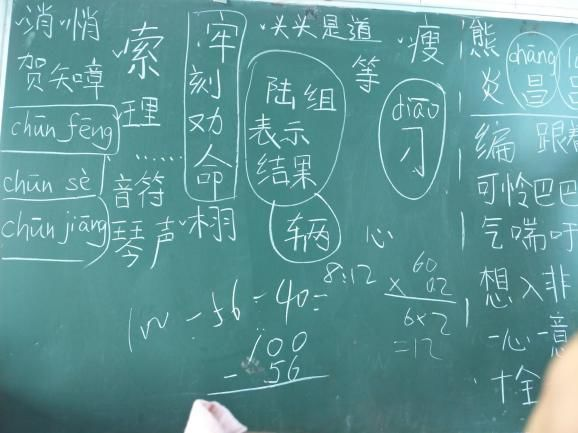 消 悄
贺 矢 嶂
chūn fēng
chūn sè
chūn jiāng
索
理
……
音符
琴声
牢
刻
劝
命
栩
头头是道
陆 组
表示
结果
辆
等
心
瘦
diāo
刁
熊
炎
chāng
昌
编 跟着
可怜巴巴
气喘吁
想入非
一心一意
十全
100-56-40=
100
- 56
8:12
60
× 02
6×2
=12